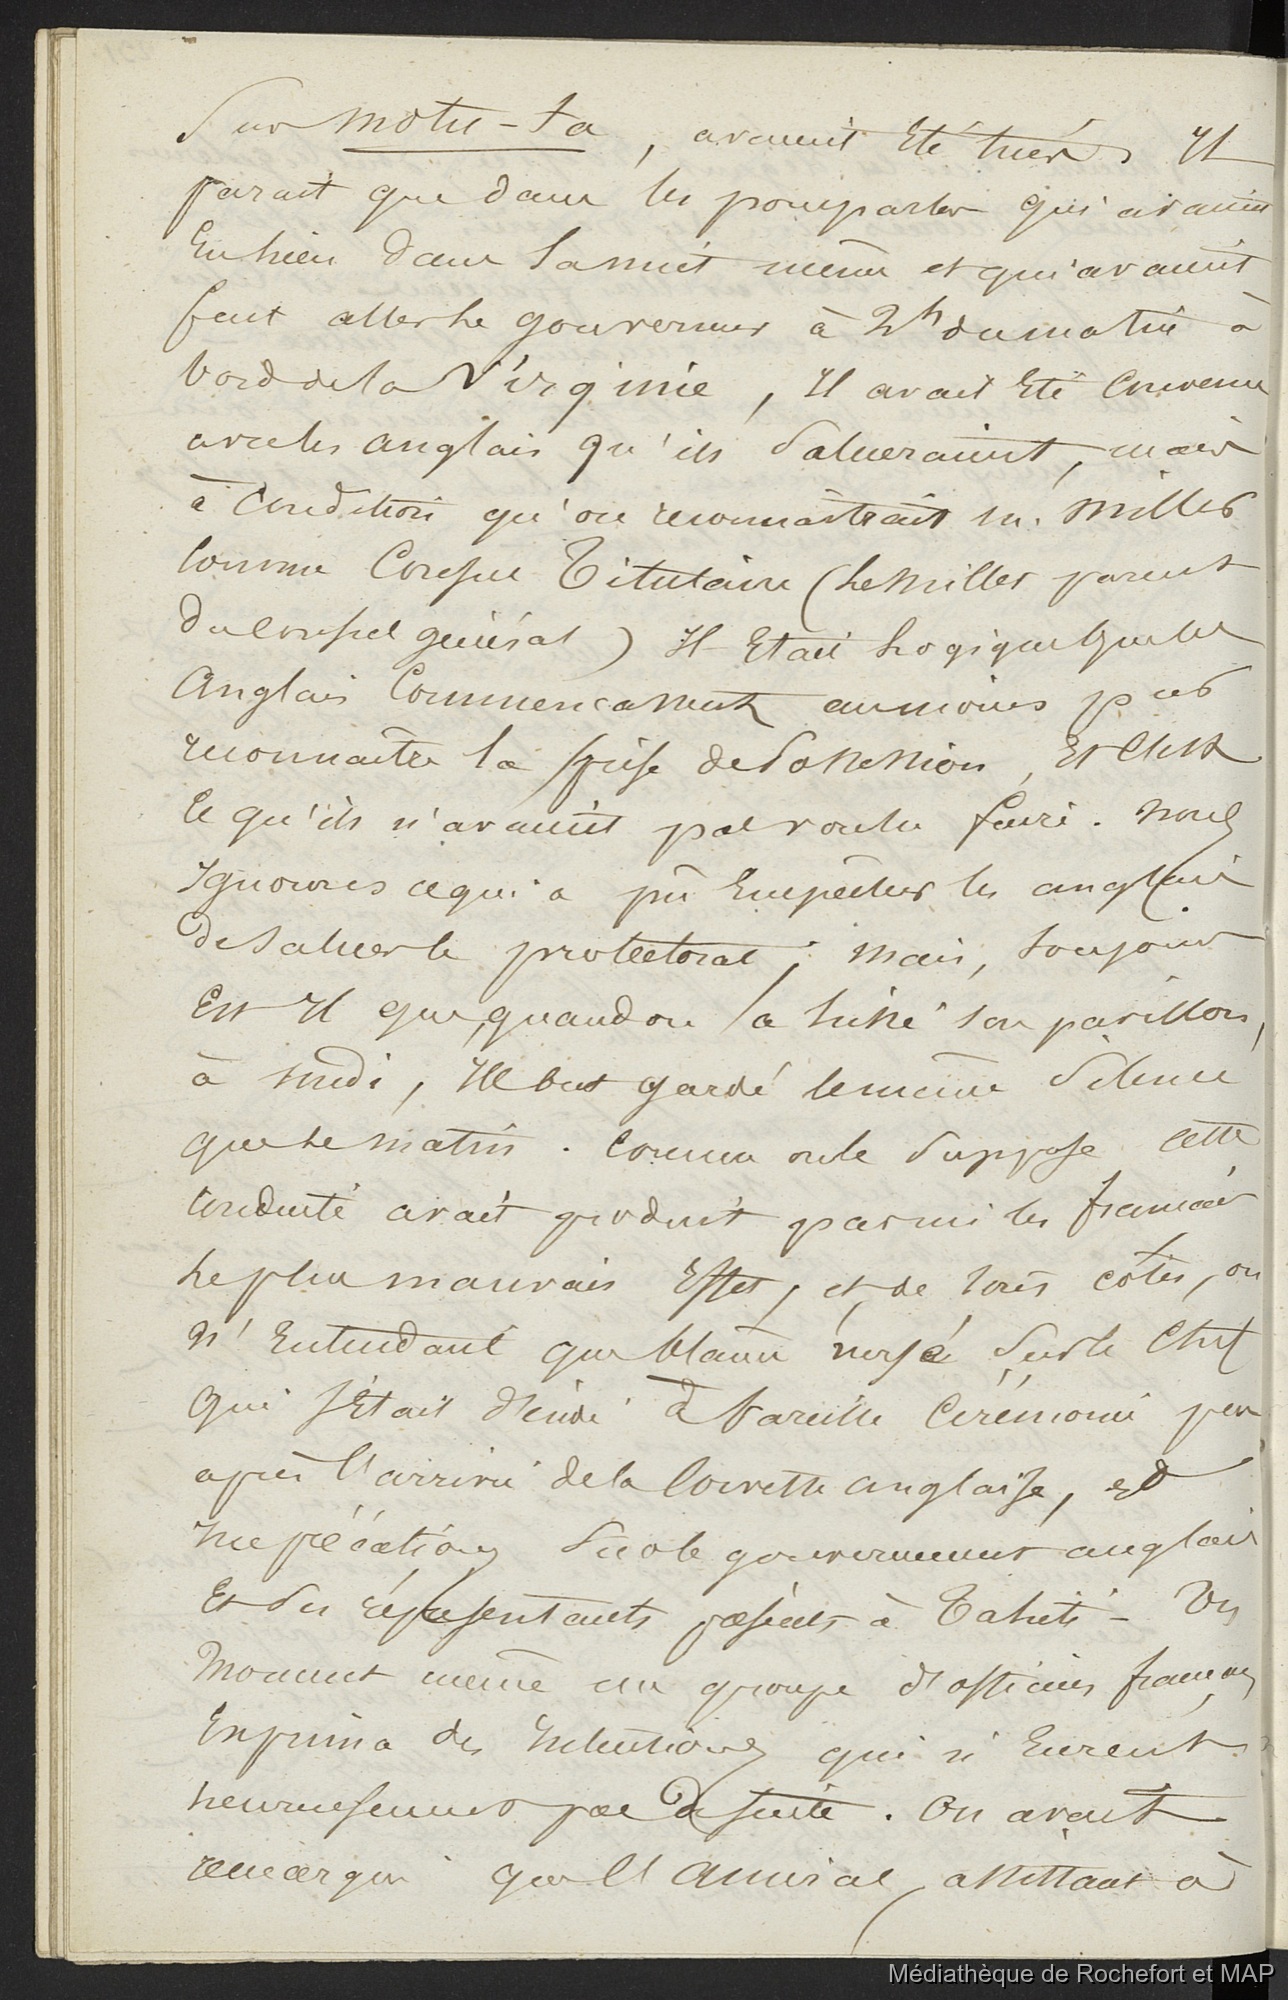 Sur Motu-Ta, avaient Eté tués. Il
parait que dans les pourparlers qui avaient
Eu lieu dans la nuit même et qui avaient
fait aller le gouverneur à 2h du matin à
bord de la Virginie, Il avait Eté Convenu
avec les anglais qu'ils Salueraient, mais
à Condition qu'on reconnaitrait M. Miller
Comme Consul Titulaire (le Miller parent
du Consul général) Il Etait Logique que les
Anglais Commencassent au moins par
reconnaître la prise de Possession, Et C'est
ce qu'ils n'avaient pas voulu faire. Nous
Ignorons ce qui a pu Empêcher les anglais
de Saluer le protectorat ; Mais, toujours
Est Il que, quand on a hissé son pavillon,
à midi, Ils ont gardé le même Silence
que le matin. Comme on le Suppose cette
Conduite avait produit parmi les français
le plus mauvais Effet, et, de tous côtés, on
N'Entendait que blâme versé Sur le Chef
qui s'Etait décidé à Pareille Cérémonie peu
après l'arrivée de la Corvette anglaise, et
Imprécations Sur le gouvernement anglais
Et Ses représentants présents à Tahiti - Un
Moment même un groupe d'officiers français
Exprima des Intentions qui n'Eurent
heureusement pas de suite. On avait
remarqué que l'Amiral, assistant à
Médiathèque de Rochefort et MAP